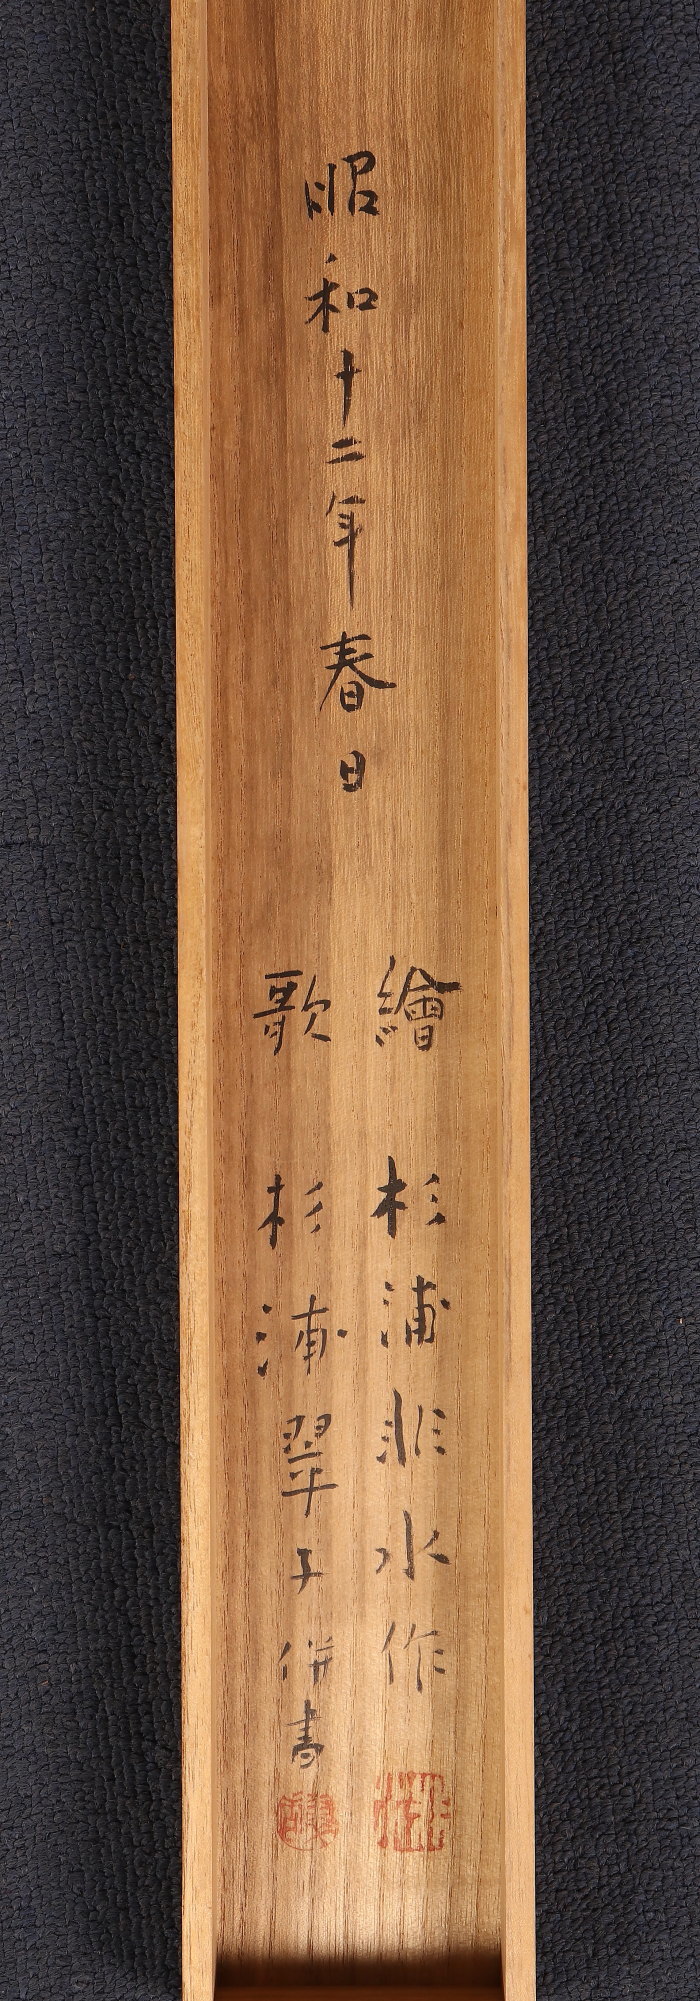 昭和十二年春日
繪 杉浦非水作
歌 杉浦翠子併書